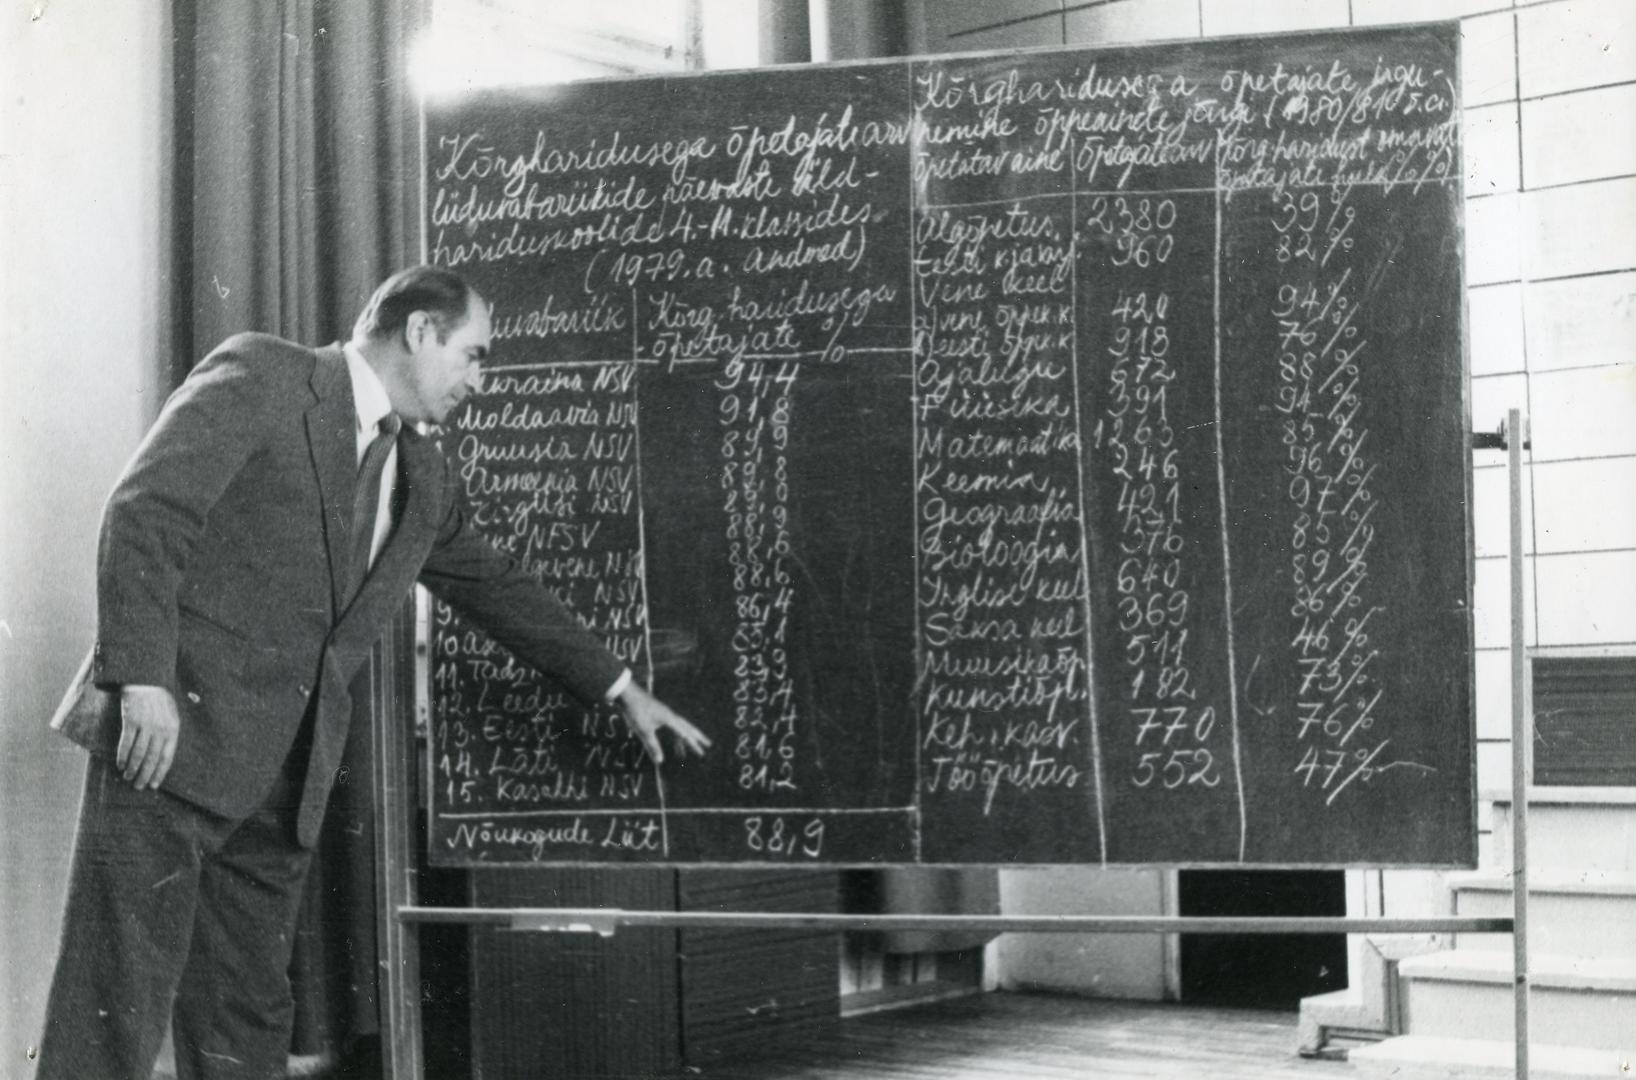 Kõrgharidusega õpetajate arv
liiduvabariikide päevaste üld-
hariduskoolide 4.-11. klassides
(1979. a. andmed)
Kõrgharidusega
õpetajate %
Ukraina NSV 94,4
Moldaavia NSV 91,8
Gruusia NSV 89,9
Armeenia NSV 89,8
Kirgiisi NSV 89,0
NFSV 88,9
88,6
NSV 88,6
9. NSV 86,4
10. NSV 85,1
11. 83,9
12. Leedu 83,4
13. Eesti NSV 82,4
14. Läti NSV 81,6
15. Kasahhi NSV 81,2
Nõukogude Liit 88,9
Kõrgharidusega õpetajate jagu-
nemine õppeainete järgi (1980/81. õ.a.)
õpetatav aine Õpetajate arv Kõrgharidust omavate
õpetajate hulk %%
Algõpetus 2380 39%
Eesti k. ja kirj. 960 82%
Vene keel
a) vene õppek. k. 420 94%
b) eesti õppek. k. 918 76%
Ajalugu 672 88%
Füüsika 391 94%
Matemaatika 1263 85%
Keemia 246 96%
Geograafia 421 97%
Bioloogia 376 85%
Inglise keel 640 89%
Saksa keel 369 86%
Muusikaõp. 511 46%
Kunstiõp. 182 73%
Keh. kasv. 770 76%
Tööõpetus 552 47%